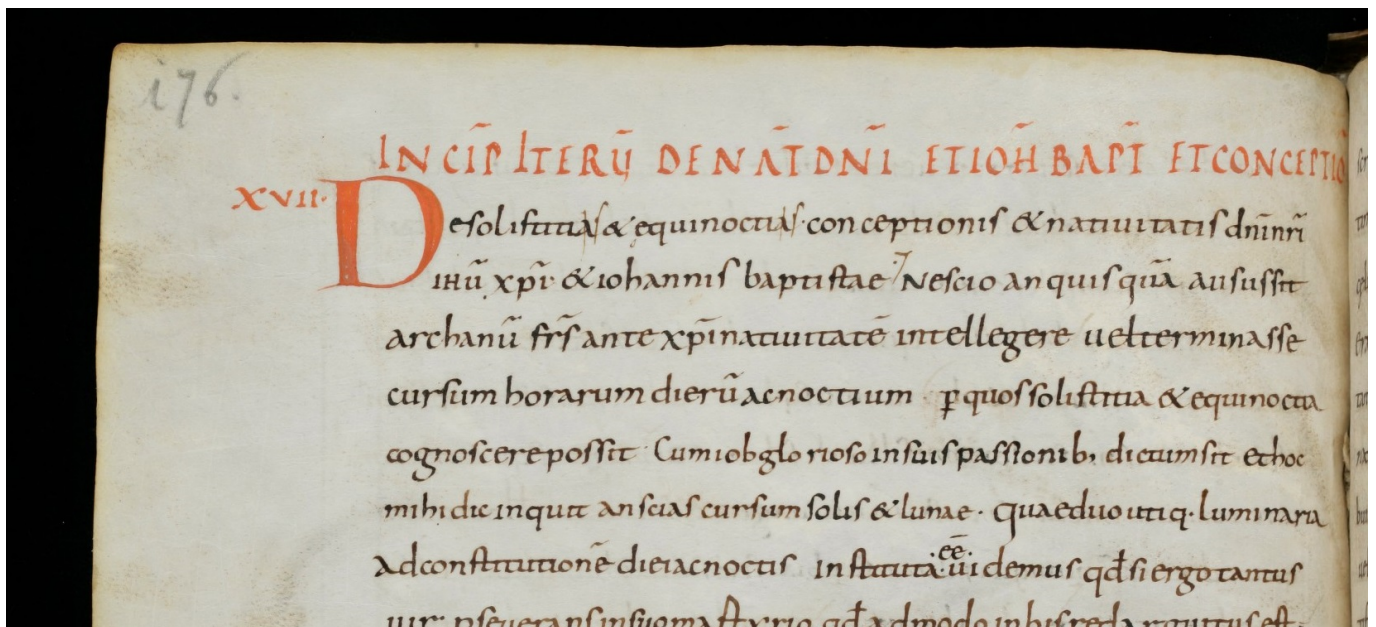 176.
INCIP̄ ITERŪ DE NAT̄ DN̄I ET IOH̄ BAPT̄ ET CONCEPTIO
XVII. De solistitias & equinoctias. conceptionis & natiuitatis dn̄i nr̄i
ihū xp̄i & iohannis baptistae Nescio an quisquā aususs̄it
archanū fr̄s ante xp̄i natiuitatē intellegere uel terminasse
cursum horarum dierū ac noctium. ꝑ quos solistitia & equinoctia
cognoscere possit Cum iob glorioso in suis passionib; dictum sit et hoc
mihi dic inquit an scias cursum solis & lunae. quae duo utiq. luminaria
Ad constitutionē diei ac noctis instituta .eē. uidemus qđ si ergo tantus
uir perseuerans in suo martyrio qđ admodo in his red arguitus est.